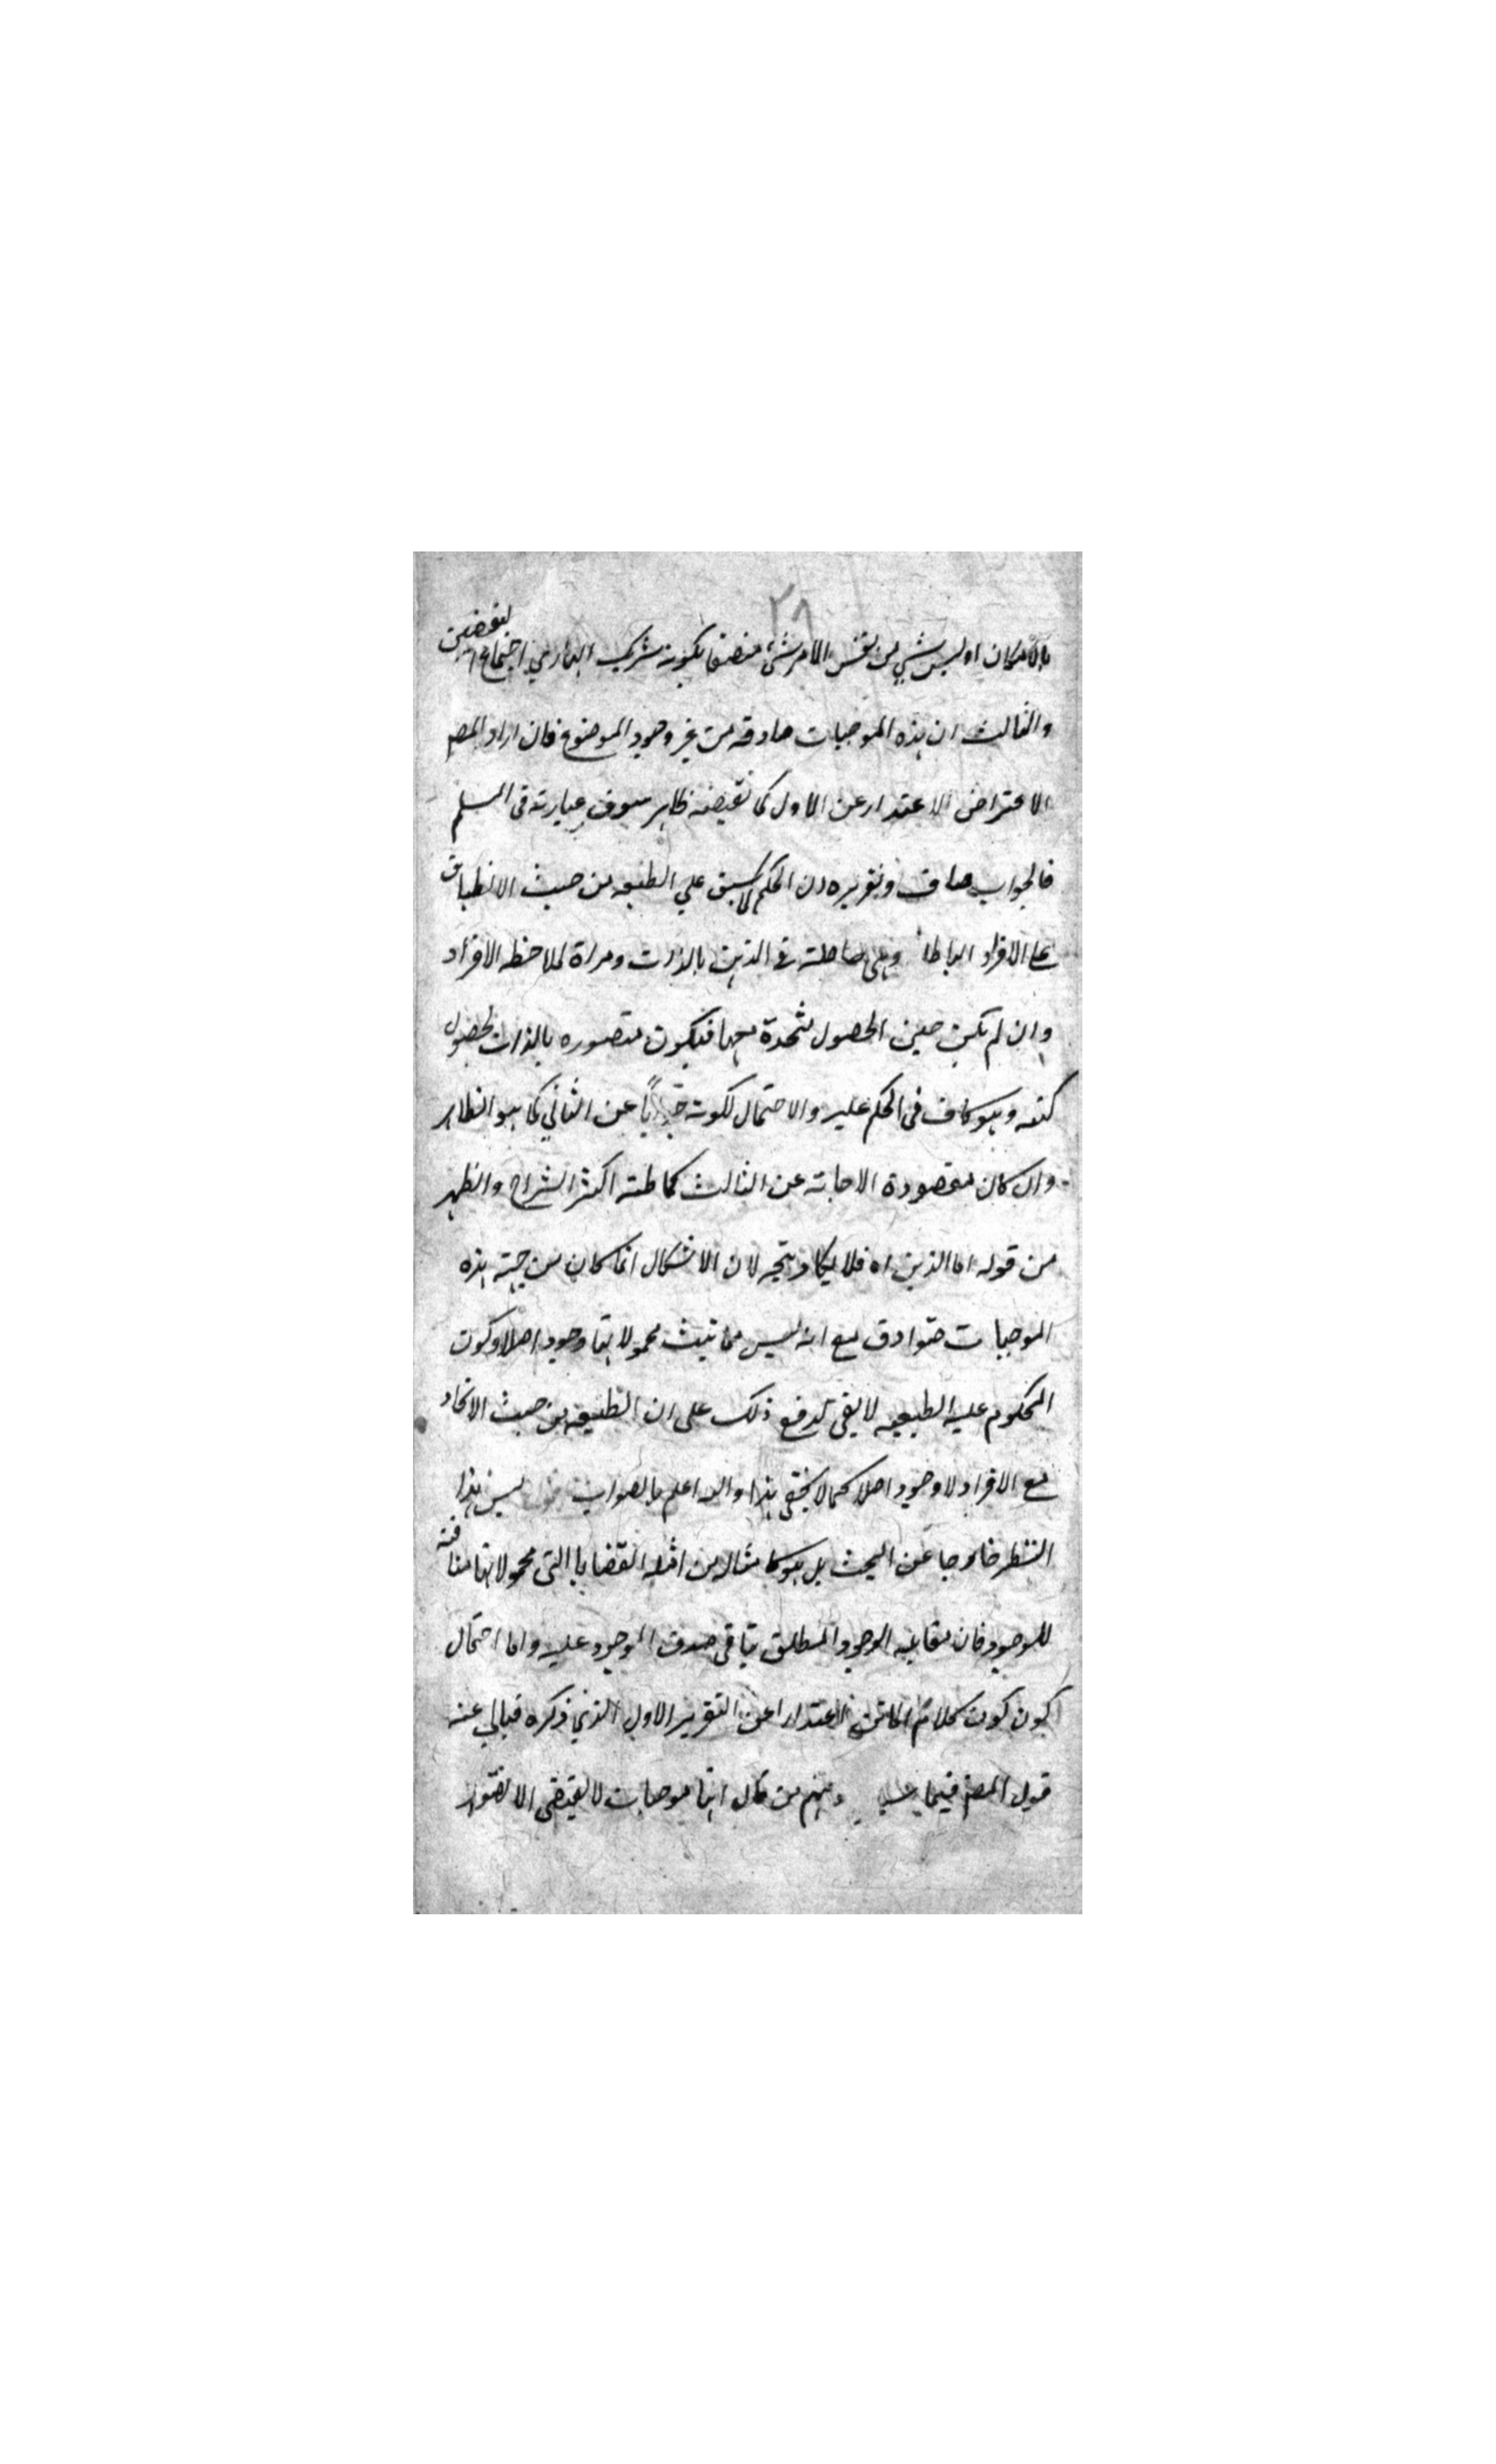 ٢٨
بالامكان او ليس شيئ من نفس الامر شئ متصفا بكونه شريك الباري اجتماع النقيضين
والثالث ان هذه الموجبات صادقه من غير وجود الموضوع فان اراد المصـ
الاعتراض الاعتذار عن الاول كما نقيضه ظاهر سوق عبارته فى السلم
فالجواب صاف وتقريره ان الحكم ليس علي الطبعه من حيث الانطباق
علي الافراد الباطله وهي حاصلة فى الذهن بالذات ومراة لملاحظه الافراد
وان لم تكن حين الحصول متحدة معها فيكون متصوره بالذات لحصول
كنهه وهو كاف فى الحكم عليه والاحتمال لكونه جوابا عن الثاني كما هو الظاهر
وان كان مقصوده الاجابة عن الثالث كما ظنه اكثر الشراح والظهر
من قوله اما الذين اه فلا يكاد يتجه لان الاشكال انما كان من جهة هذه
الموجبات صوادق مع انه ليس مما تبث محمولاتها وجود اصلا وكون
المحكوم عليه الطبعيه لا يفى لدفع ذلك على ان الطبيعه من حيث الاتحاد
مع الافراد لا وجود اصلا كما لا يخفى هذا والله اعلم بالصواب ليس هذا
النظر خارجا عن البحث بل هو كما مثال من امثله القضايا التى محمولاتها منافية
للوجود فان مقابله الوجود المطلق ينافى صدق الموجود عليه واما احتمال
كون كون كلام الماتن اعتذارا عن التقرير الاول الذي ذكره فيابي عنه
قول المصـ فيما ومنهم من قال انها موجبات لا تقتضى الا تصور